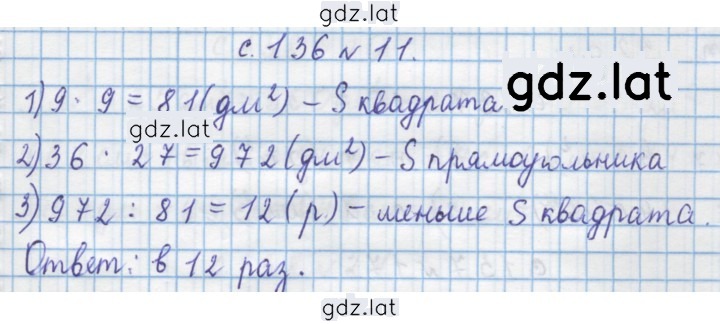 gdz.lat
с. 136 № 11.
gdz.lat
1) 9 · 9 = 81 (дм²) – S квадрата
gdz.lat
2) 36 · 27 = 972 (дм²) – S прямоугольника
3) 972 : 81 = 12 (р) – меньше S квадрата.
Ответ: в 12 раз.
gdz.lat